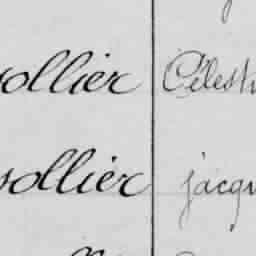 ollier Célest
ollier jacqu